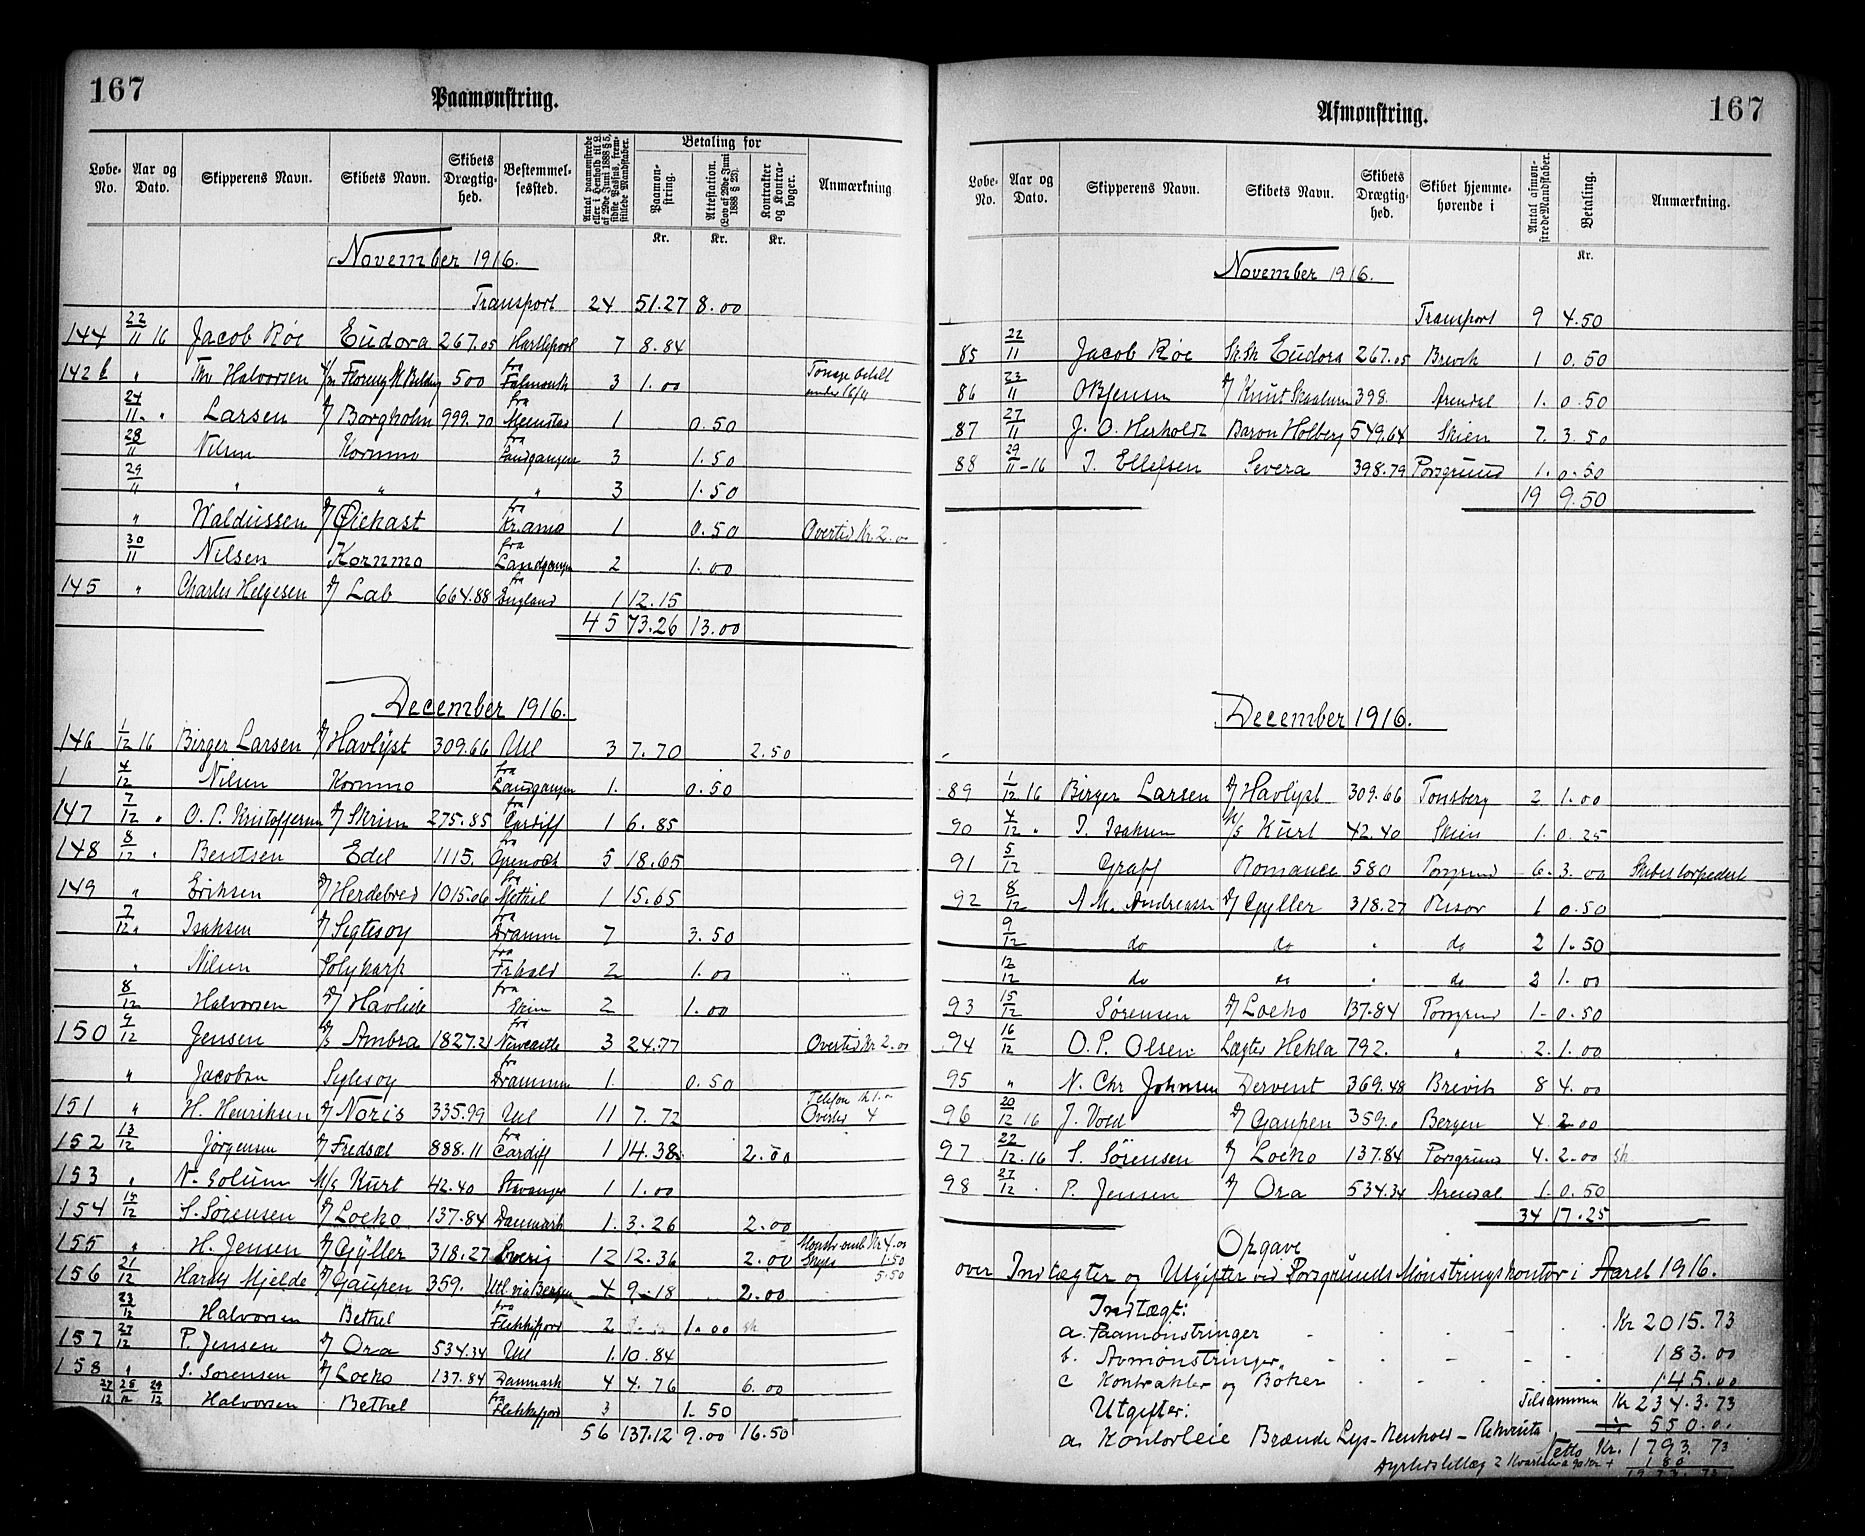 167
Paamønstring.
Løbe-No. | Aar og Dato. | Skipperens Navn. | Skibets Navn. | Skibets Drægtig-hed. | Bestemmel-sessted. | Antal paamønstrede eller i Henhold til L. af 29de Juni 1888 § 5, sidste Passus, frem-stillede Mandskaber. | Betaling for | Paamøn-string. | Attestation. (Lov af 29de Juni 1888 § 23). | Kontrakter og Kontra-bøger. | Anmærkning
Kr. | Kr. | Kr.
November 1916.
Transport 24 51.27 8.00
144 22/11 16 Jacob Røe Eudora 267.05 Hartlepool 7 8.84
142b " Thv Halvorsen 500 fra Falmouth 3 1.00
24/11 " Larsen D/ Borgholm 999.70 fra 1 0.50
28/11 Nilsen Kornmo fra Landgangen 3 1.50
29/11 " " " 3 1.50
" Waldussen D/ Øiekast fra Kr.ania 1 0.50 Overtid Kr 2.00
30/11 Nilsen Kornmo fra Landgangen 2 1.00
145 " Charles Helgesen D/ Lab 664.88 fra England 1 12.15
45 73.26 13.00
December 1916.
146 1/12 16 Birger Larsen D/ Havlyst 309.66 Utl 3 7.70 2.50
4/12 Nilsen Kornmo fra Landgangen 1. 0.50
147 7/12 " O. P. Kristoffersen D/ Skrim 275.85 fra Cardiff 1 6.85
148 8/12 Bentsen Edel 1115. fra Grenock 5 18.65
149 " Eriksen D/ Herdebred 1015.06 fra Methil 1 15.65
7/12 Isaksen D/ Segtesoy fra Drammen 7 3.50
" Nilsen Polykarp fra 2 1.00
8/12 Halvorsen D/ Havlide fra Skien 2 1.00
150 9/12 Jensen D/S Ambra 1827.21 fra Newcastle 3 24.77 Overtid Kr 2.00
" Jacobsen Seglesoy fra Drammen 1. 0.50
151 " H. Henriksen D/ Noris 335.99 Utl 11 7.72 Telefon Kr 1.- Overtid 4
152 13/12 Jørgensen D/ Fredsæl 888.11 fra Cardiff 1 14.38 2.00
153 " N. Solum M/S Kurt 42.40 Stavanger 1 1.00
154 15/12 S. Sørensen D/ Loeko 137.84 Danmark 1. 3.26 2.00
155 " H. Jensen D/ Gyller 318.27 Sverig 12 12.36 2.00 Kr 4.00 Skyds 1.50 5.50
156 21/12 Harals Mjelde D/ Gaupen 359. Utl. via Bergen 4 9.18 2.00
23/12 Halvorsen Bethel fra Flekkefjord 2 1.00
157 27/12 P. Jensen D/ Ora 534.34 Utl 1. 10.84
158 " S. Sorensen D/ Loeko 137.84 Danmark 4 4.76 6.00
27/12 28/12 29/12 Halvorsen Bethel fra Flekkefjord 3 1.50
56 137.12 9.00 16.50
167
Afmønstring.
Løbe-No. | Aar og Dato. | Skipperens Navn. | Skibets Navn. | Skibets Drægtig-hed. | Skibet hjemme-hørende i | Antal afmøn-strede Mandskaber. | Betaling. | Anmærkning.
Kr.
November 1916.
Transport 9 4.50
85 22/11 Jacob Røe Sk.Sk Eudora 267.05 Brevik 1 0.50
86 23/11 D/ Knut Skaaluren 398. Arendal 1. 0.50
87 27/11 J. O. Herholdt Baron Holberg 549.64 Skien 7. 3.50
88 29/11-16 I. Ellefsen Severa 398.79 Porsgrund 1. 0.50
19 9.50
December 1916.
89 1/12 16 Birger Larsen D/ Havlyst 309.66 Tønsberg 2 1.00
90 4/12 " I. Isaksen M/S Kurt 42.40 Skien 1. 0.25
91 5/12 Graff Romance 580 Porsgrund 6. 3.00 Skibet torpedert
92 8/12 A M. Andreassen D/ Gyller 318.27 Risør 1 0.50
9/12 do do " do 2 1.50
12/12 do do " do 2 1.00
93 15/12 Sørensen D/ Loeko 137.84 Porsgrund 1- 0.50
94 16/12 O. P. Olsen Lægter Hekla 792. " 2. 1.00
95 " N. Chr Johnsen Dervent 369.48 Brevik 8 4.00
96 20/12 16 J. Vold D/ Gaupen 359.0 Bergen 4. 2.00
97 22/12.16 S. Sørensen D/ Loeko 137.84 Porsgrund 4. 2.00
98 27/12 P. Jensen D/ Ora 534.34 Arendal 1. 0.50
34 17.25
Opgave
over Indtægter og Utgifter ved Porsgrunds Mønstringskontor i Aaret 1916.
Indtægt:
a. Paamønstringer Kr 2015.73
b. Avmønstringer 183.00
c Kontrakter og Bøker 145.00
Tilsammen Kr 2343.73
Utgifter:
a. Kontorleie Brænde Lys- Renhold- Rekvisita 550.00
Netto Kr. 1793.73
Dyrtidstillæg 2 Kvartaler a 90 Kr + 180
1973.73